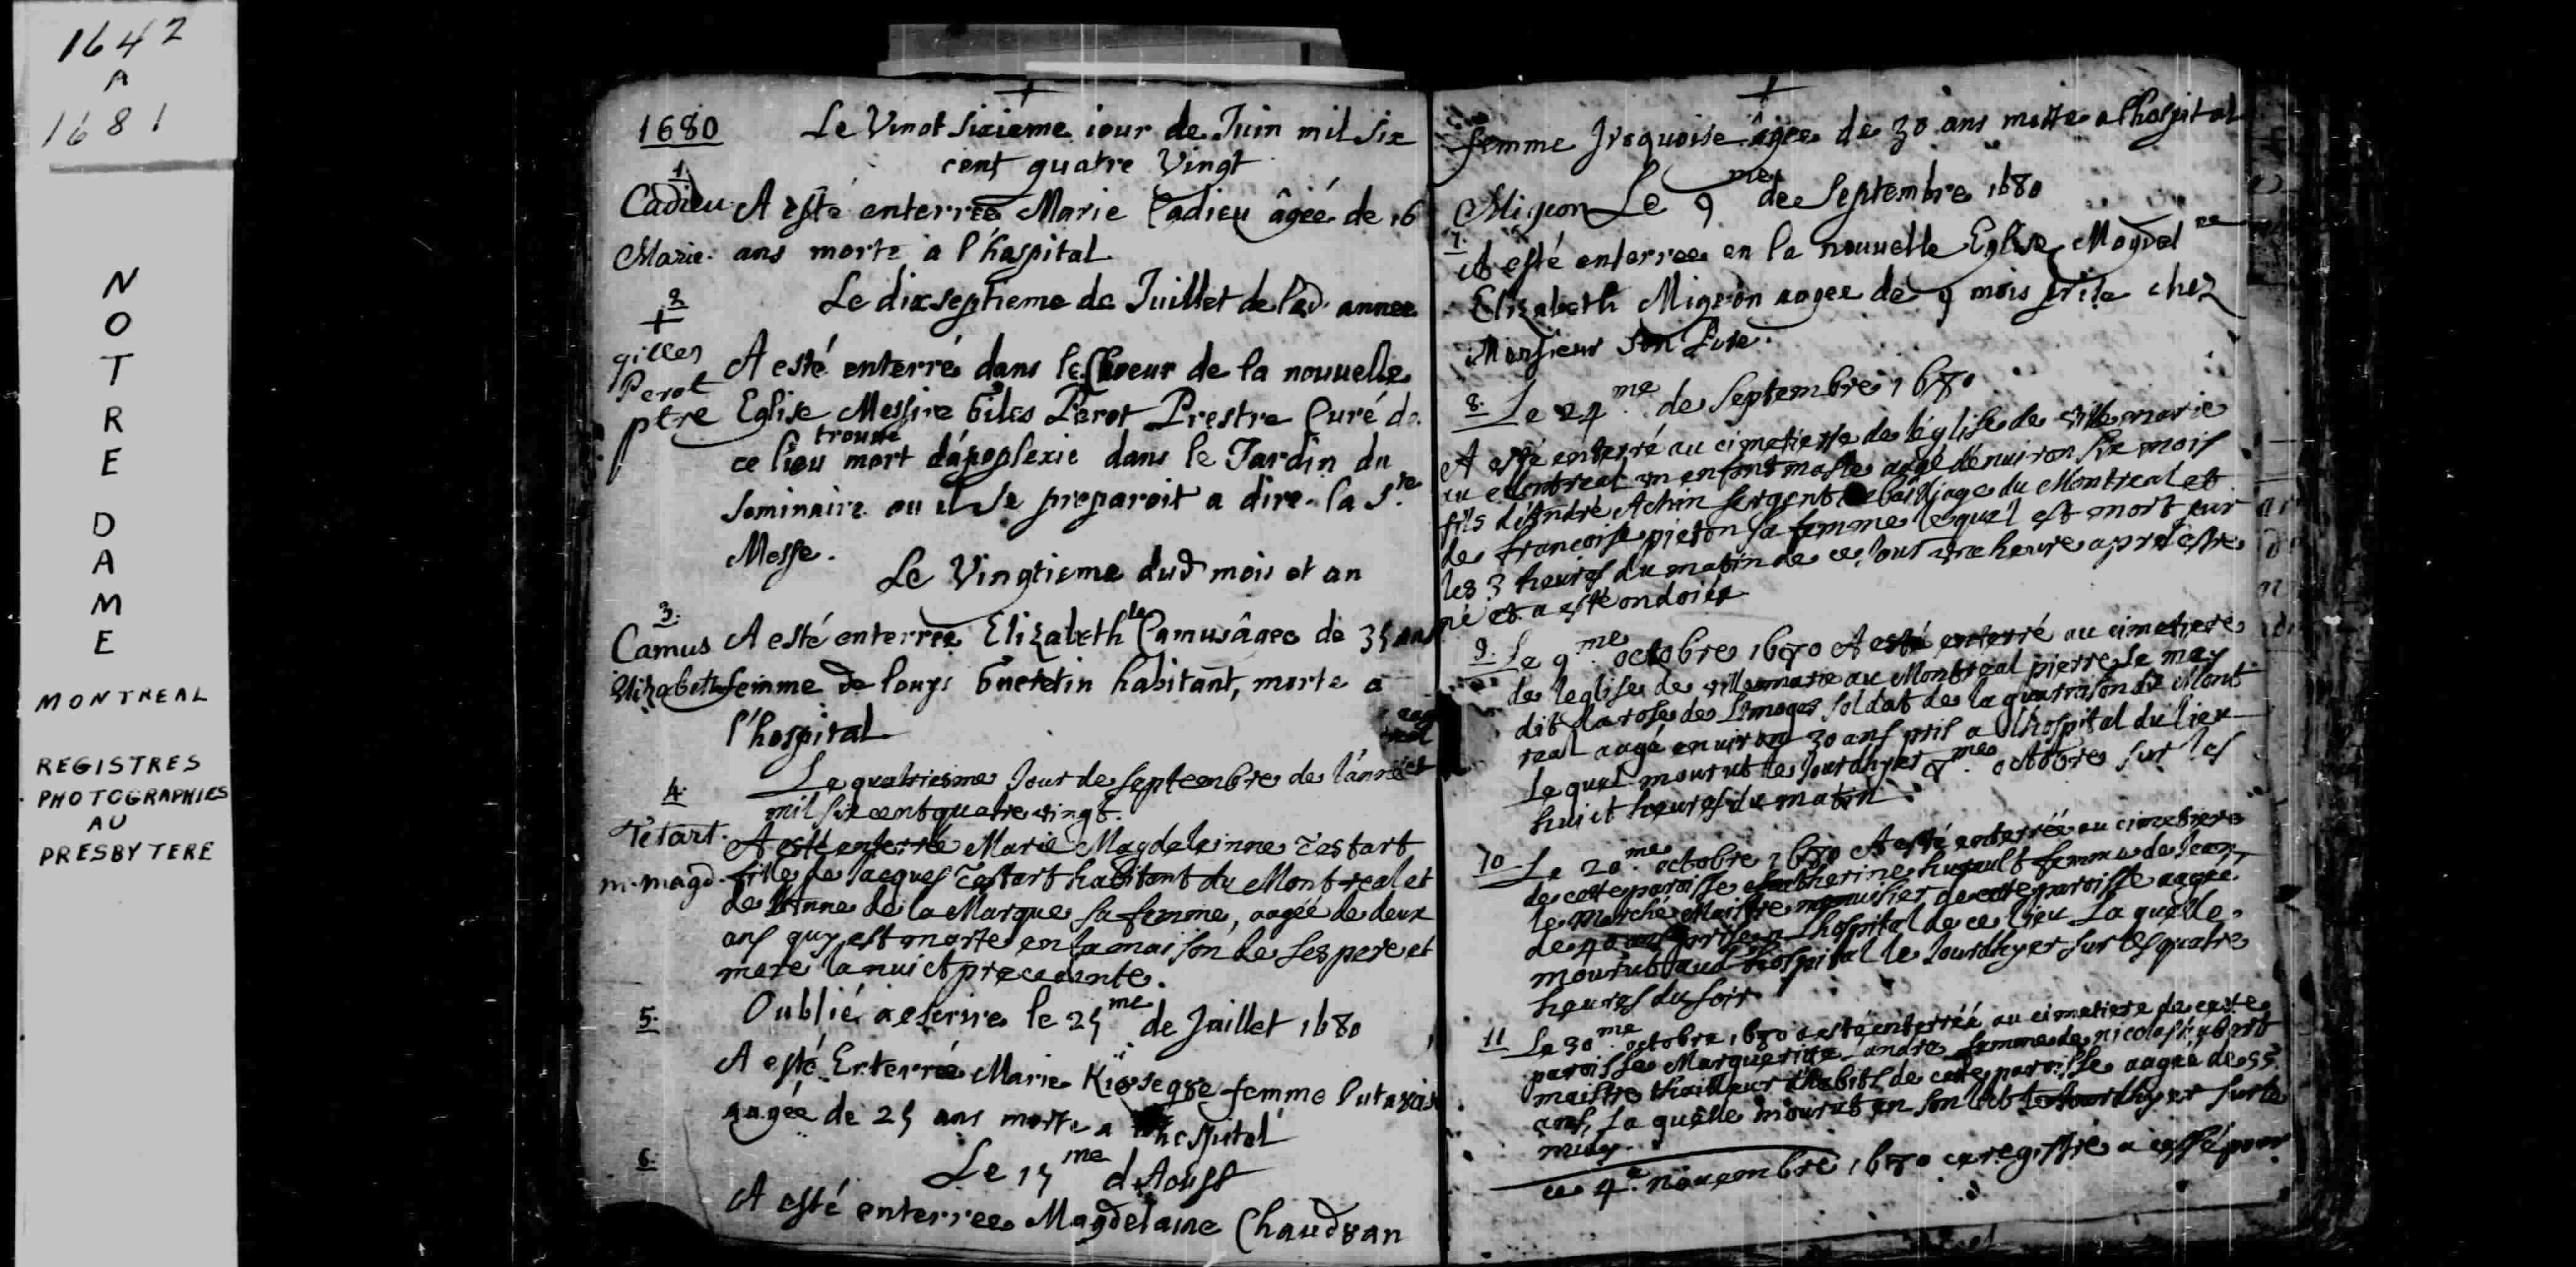 1642
A
1681
NOTRE DAME
MONTREAL
REGISTRES
PHOTOGRAPHIES
AU
PRESBYTERE
1680
Le Vingt sixieme iour de Juin mil six
cent quatre Vingt
1.
Cadieu A esté enterree Marie Cadieu âgée de 16
Marie. ans morte a l'hospital
2
Le dix septieme de Juillet de lad. annee
gilles
Perot
ptre
A esté enterré dans le Choeur de la nouuelle
Eglise Messire Giles Perot Prestre Curé de
trouué
ce lieu mort d'apoplexie dans le Jardin du
Seminaire ou il se preparoit a dire la Ste
Messe.
Le Vingtieme dud mois et an
3.
Camus A esté enterree Elizabeth le Camus âgee de 35 ans
Elizabeth femme de louys Guertin habitant, morte a
l'hospital
4.
Le quatriesme Jour de septembre de l'année
mil six cent quatre vingt.
Tetart. A esté enterrée Marie Magdeleinne Testart
m. magd. fille de Jacques Testart habitant du Montreal et
de Anne de la Marque sa femme, aagée de deux
ans quy est morte en la maison de ses pere et
mere la nuict precedente.
5.
Oublié a escrire le 25me de Juillet 1680
A esté Enterrée Marie femme
aagée de 25 ans morte a hospital
6.
Le 15me d'Aoust
A esté enterree Magdelaine
femme Iroquoise âgee de 30 ans morte a l'hospital
Migeon Le 9me de Septembre 1680
7.
A esté enterree en la nouuelle Eglise Magdelne
Elizabeth Migeon aagee de 9 mois prise chez
Monsieur Son Pere.
8. Le 24me de Septembre 1680
A esté enterré au cimetierre de l'eglise de ville marie
au Montreal un enfant masle aagé d'enuiron six mois
fils d'André Achin sergent bailliage du Montreal et
de francoise pieton sa femme lequel est mort sur
les 3 heures du matin de ce Jour une heure apres estre
né et a esté ondoiée
9. Le 9me octobre 1680 A esté enterré au cimetiere
de leglise de villemarie au Montreal pierre le may
dit la rose de Limoges soldat de la guarnison de Mont
real aagé enuiron 30 ans pris a l'hospital du lieu
Le quel mourut le Jourdhyer 8me octobre sur les
huict heures du matin
10 Le 20me octobre 1680 A esté enterrée au cimetiere
de cette paroisse Catherine hugault femme de Jean
le Marché Maistre menuisier de cette paroisse aagée
de 40 ans prise en Lhospital de ce lieu La quelle
mourut aud hospital le Jourdhyer sur les quatre
heures du soir
11 Le 30me octobre 1680 a esté enterrée au cimetiere de cette
paroisse Marguerite Landra femme de nicolas hubert
maistre thailleur d'habits de cette paroisse aagée de 55
ans, La quelle mourut en son lict le Jourdhyer sur le
midy.
ce 4e nouembre 1680 ce registre a cessé pour